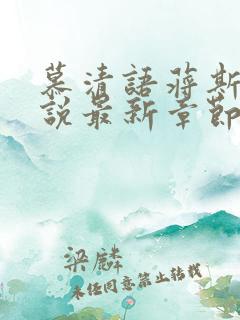 慕清語蒋斯
説最新章節
梁麟
未经同意禁止转载